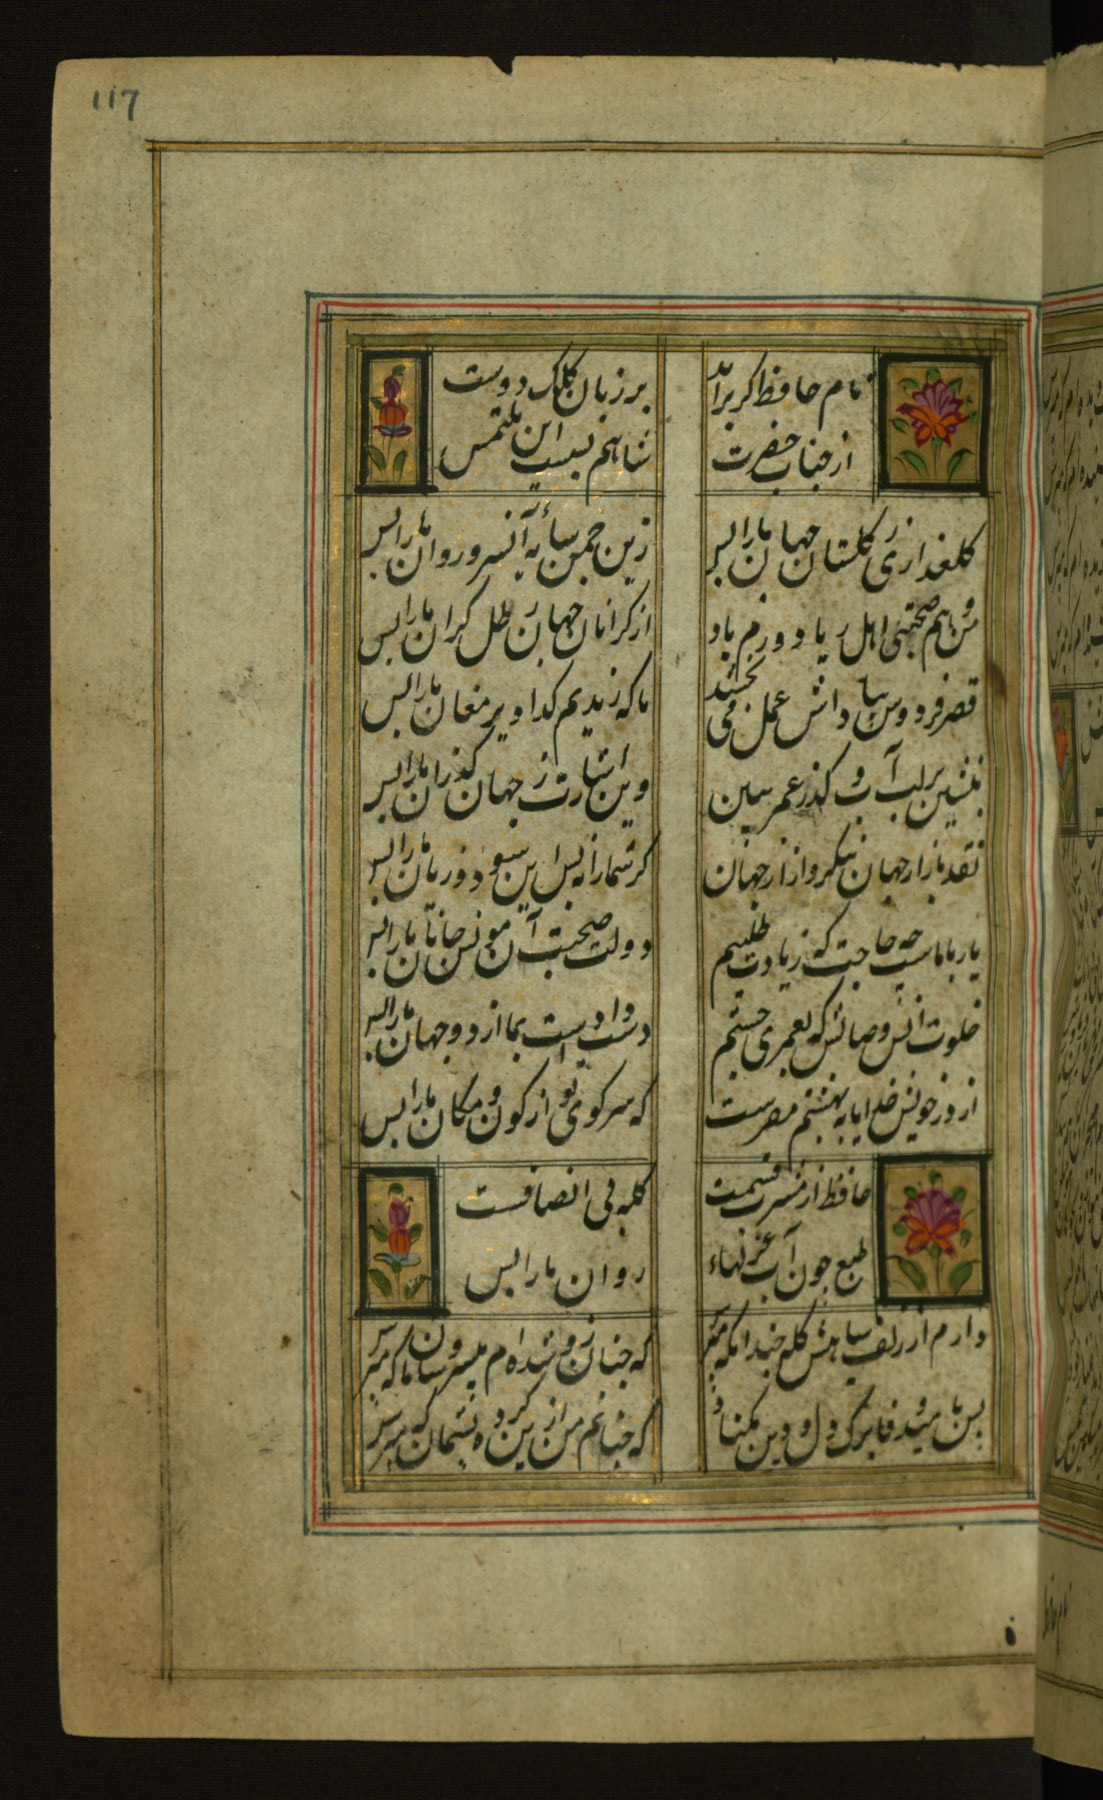 117
نام حافظ کر برآید بر زبان کلک دوست
از جناب حضرت شاهم بسست این ملتمس
کلعذاری ز کلستان جهان ما را بس
زین چمن سایه آن سرو روان ما را بس
من و هم صحبتی اهل ریا دورم باد
از کرانان جهان رطل کران ما را بس
قصر فردوس بپاداش عمل می بخشند
ما که رندیم و کدا دیر مغان ما را بس
بنشین بر لب آب و کذر عمر ببین
وین اشارت ز جهان کذران ما را بس
نقد بازار جهان بنکر و آزار جهان
کر شما را نه بس این سود و زیان ما را بس
یار با ماست چه حاجت که زیادت طلبیم
دولت صحبت آن مونس جان ما را بس
خلوت انس و صالش که بعمری جستم
دست داد است بما از دو جهان ما را بس
از در خویش خدایا به بهشتم مفرست
که سر کوی تو از کون و مکان ما را بس
حافظ از مشرب قسمت کله بی انصافست
طبع چون آب غزلهاء روان ما را بس
دارم از زلف سیاهش کله چندانکه مپرس
که چنان زو شده‌ام بی سر و سامان که مپرس
کس بامید وفا ترک دل و دین مکناد
که چنانم من ازین کرده پشیمان که مپرس